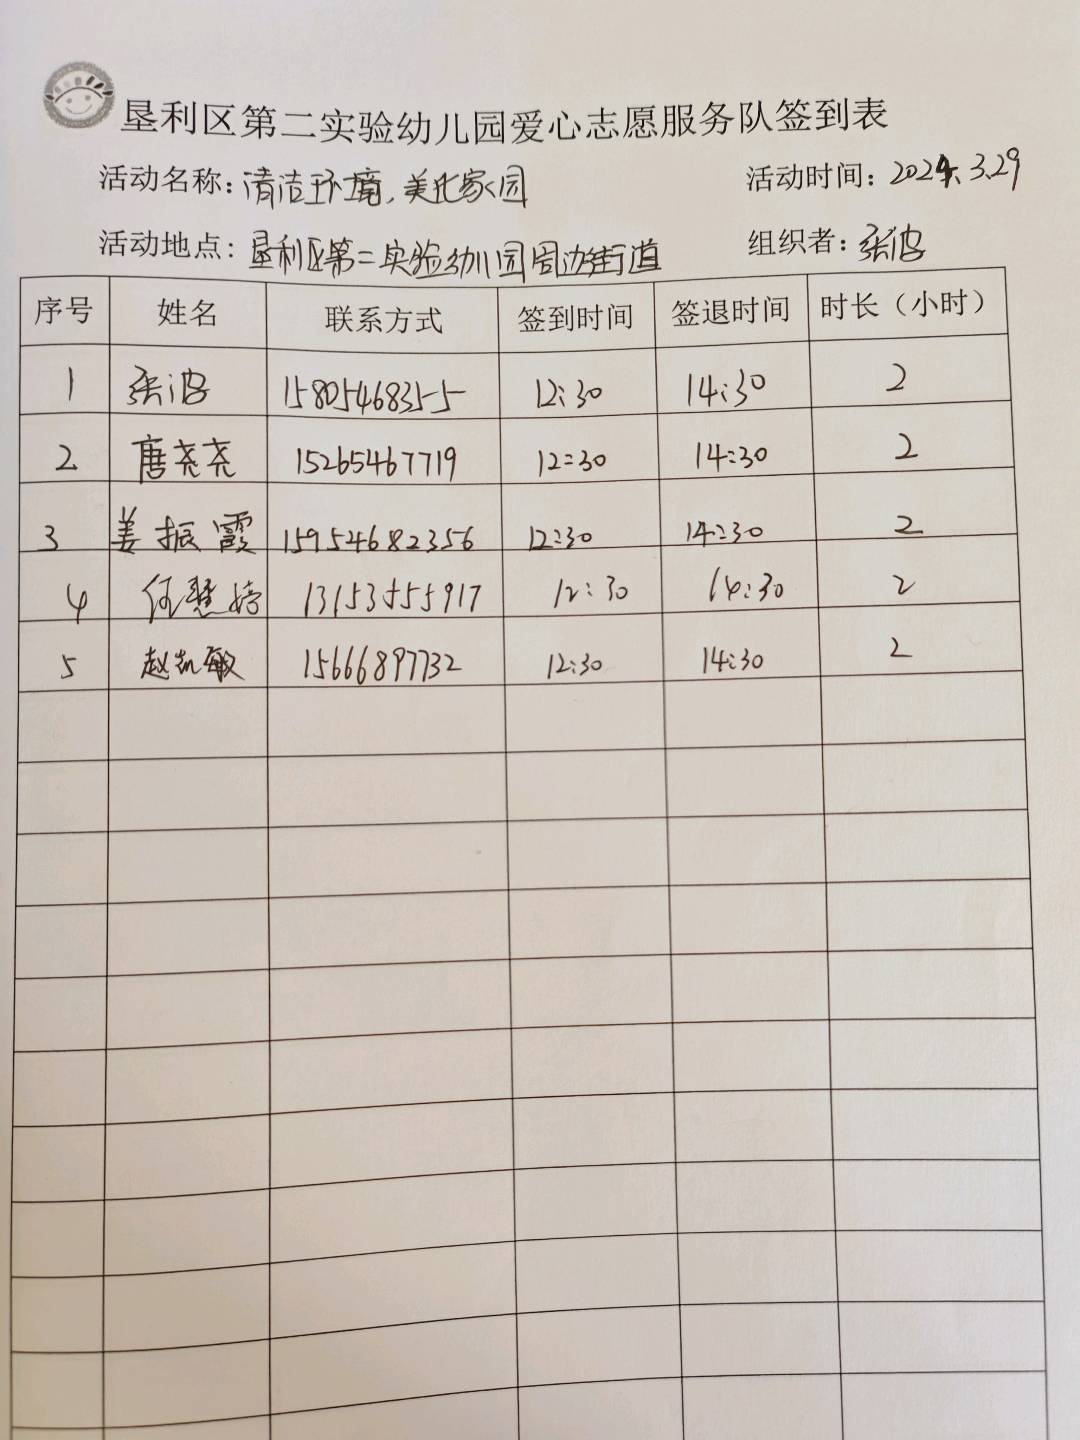 垦利区第二实验幼儿园爱心志愿服务队签到表
活动名称：清洁环境，美化家园 活动时间：2024.3.29
活动地点：垦利区第二实验幼儿园周边街道 组织者：张波
序号 姓名 联系方式 签到时间 签退时间 时长（小时）
1 张波 15805468355 12:30 14:30 2
2 唐尧尧 15265467719 12:30 14:30 2
3 姜振霞 15954682356 12:30 14:30 2
4 何慧婷 13153555917 12:30 14:30 2
5 赵凯敏 15666897732 12:30 14:30 2